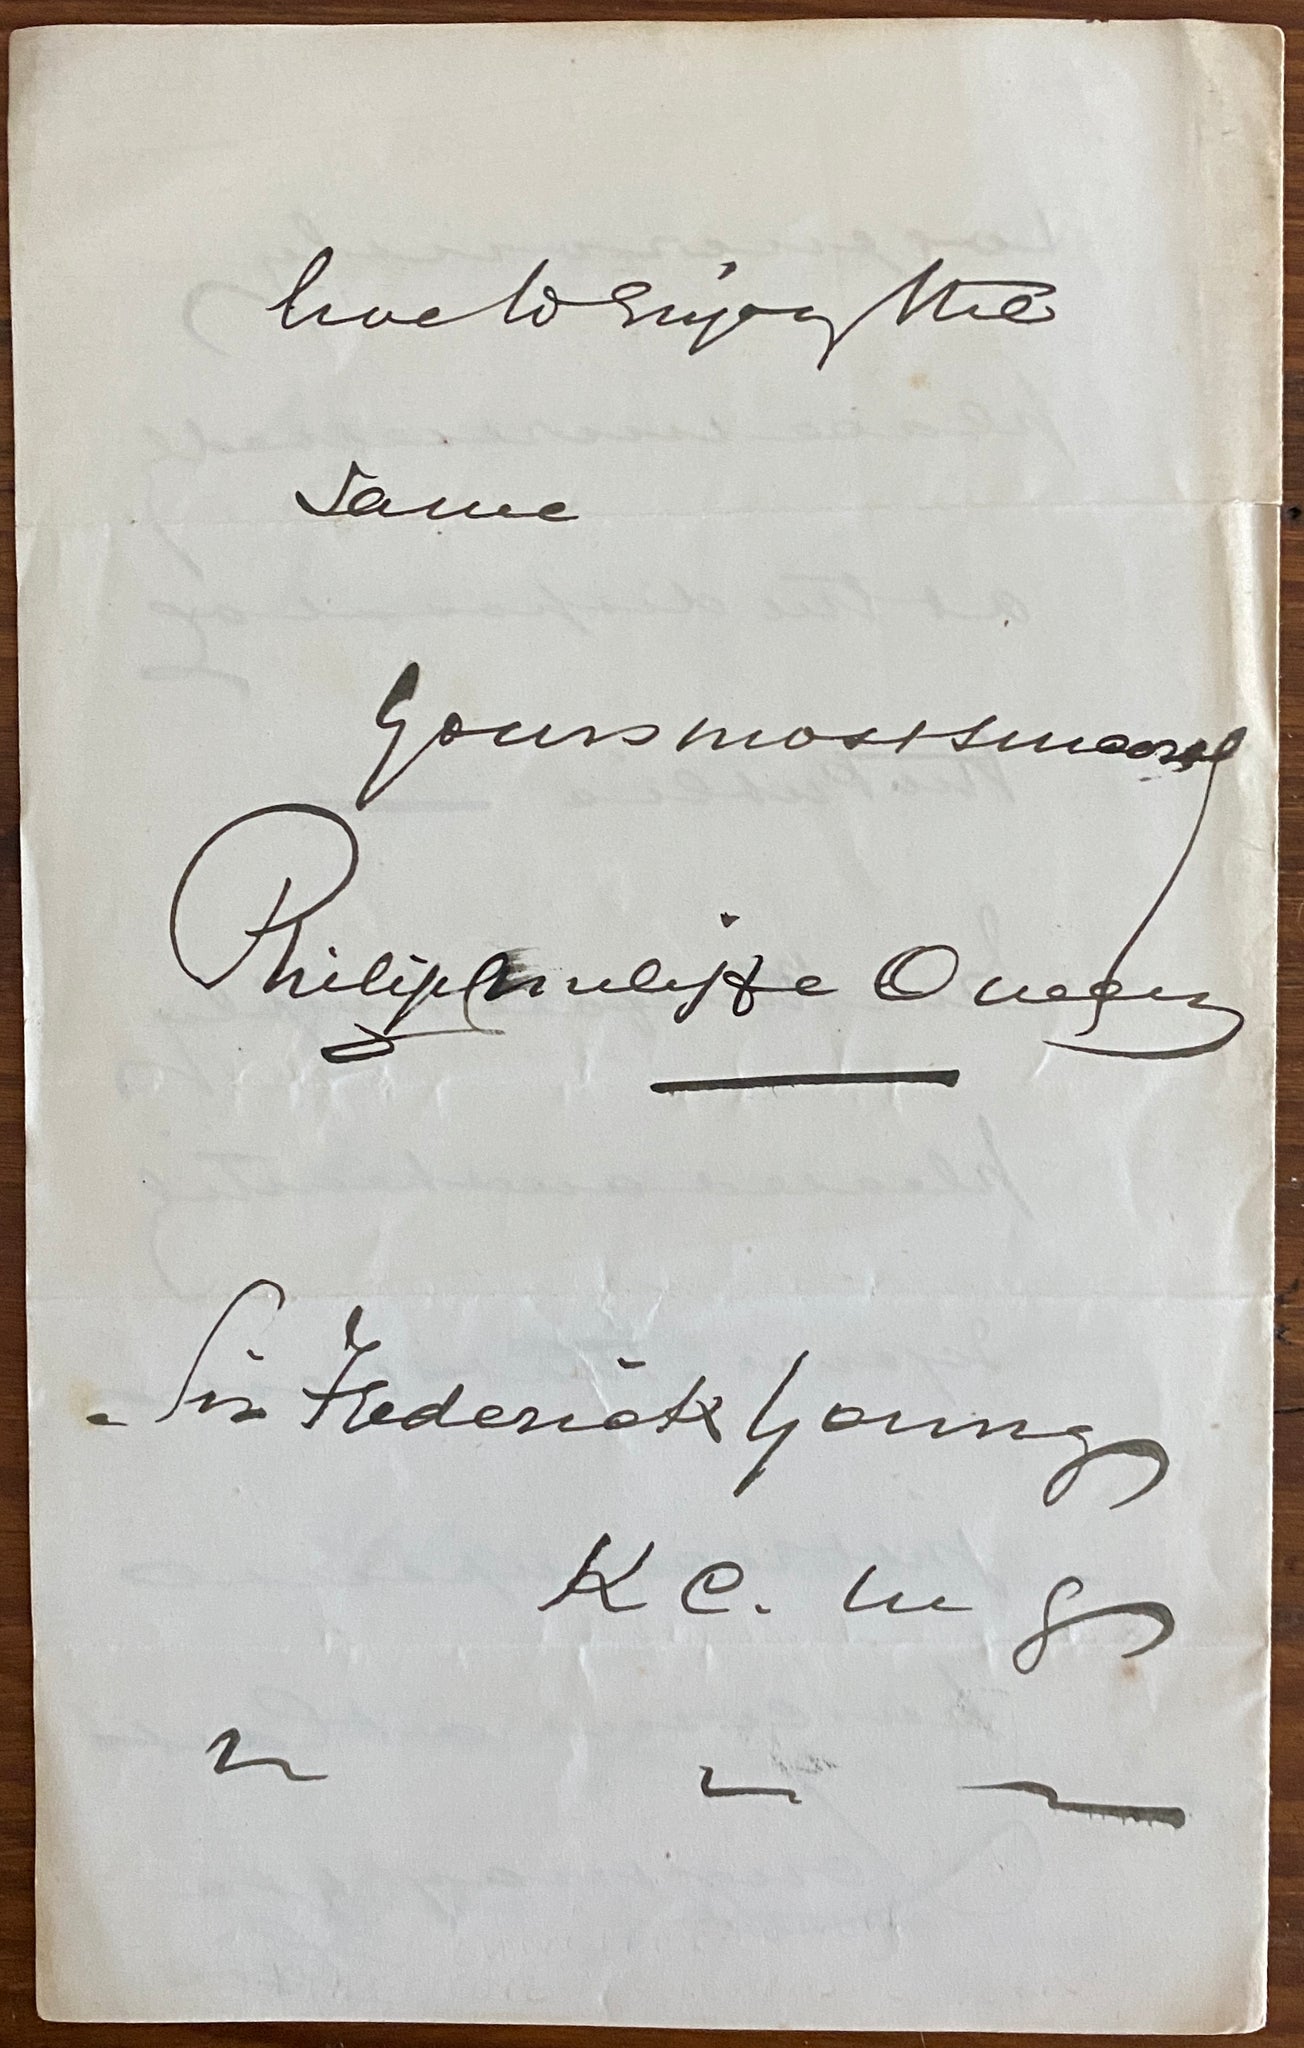 live to enjoy the
same
Yours most sincerely
Philip Cunliffe Owen
Sir Frederick Young
K C. M G